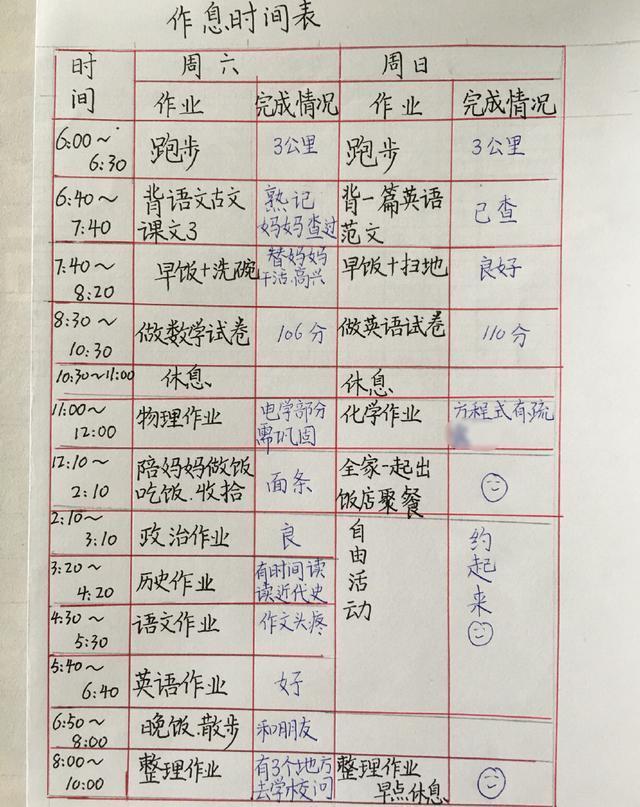 作息时间表
时间 周六 周日
作业 完成情况 作业 完成情况
6:00～6:30 跑步 3公里 跑步 3公里
6:40～7:40 背语文古文课文3 熟记妈妈查过 背一篇英语范文 已查
7:40～8:20 早饭+洗碗 替妈妈干活.高兴 早饭+扫地 良好
8:30～10:30 做数学试卷 106分 做英语试卷 110分
10:30～11:00 休息 休息
11:00～12:00 物理作业 电学部分需巩固 化学作业 方程式有疏
12:10～2:10 陪妈妈做饭吃饭.收拾 面条 全家一起出饭店聚餐
2:10～3:10 政治作业 良 自由活动 约起来
3:20～4:20 历史作业 有时间读读近代史
4:30～5:30 语文作业 作文头疼
5:40～6:40 英语作业 好
6:50～8:00 晚饭.散步 和朋友
8:00～10:00 整理作业 有3个地方去学校问 整理作业早点休息